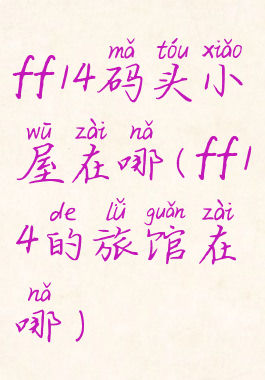 mǎ tóu xiǎo
ff14码头小
wū zài nǎ
屋在哪(ff1
de lǚ guǎn zài
4的旅馆在
nǎ
哪)